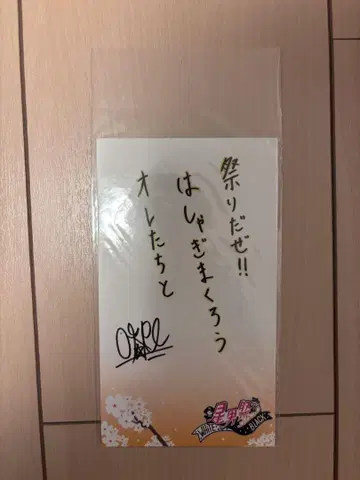 祭りだぜ!!
はしゃぎまくろう
オレたちと
BLACK